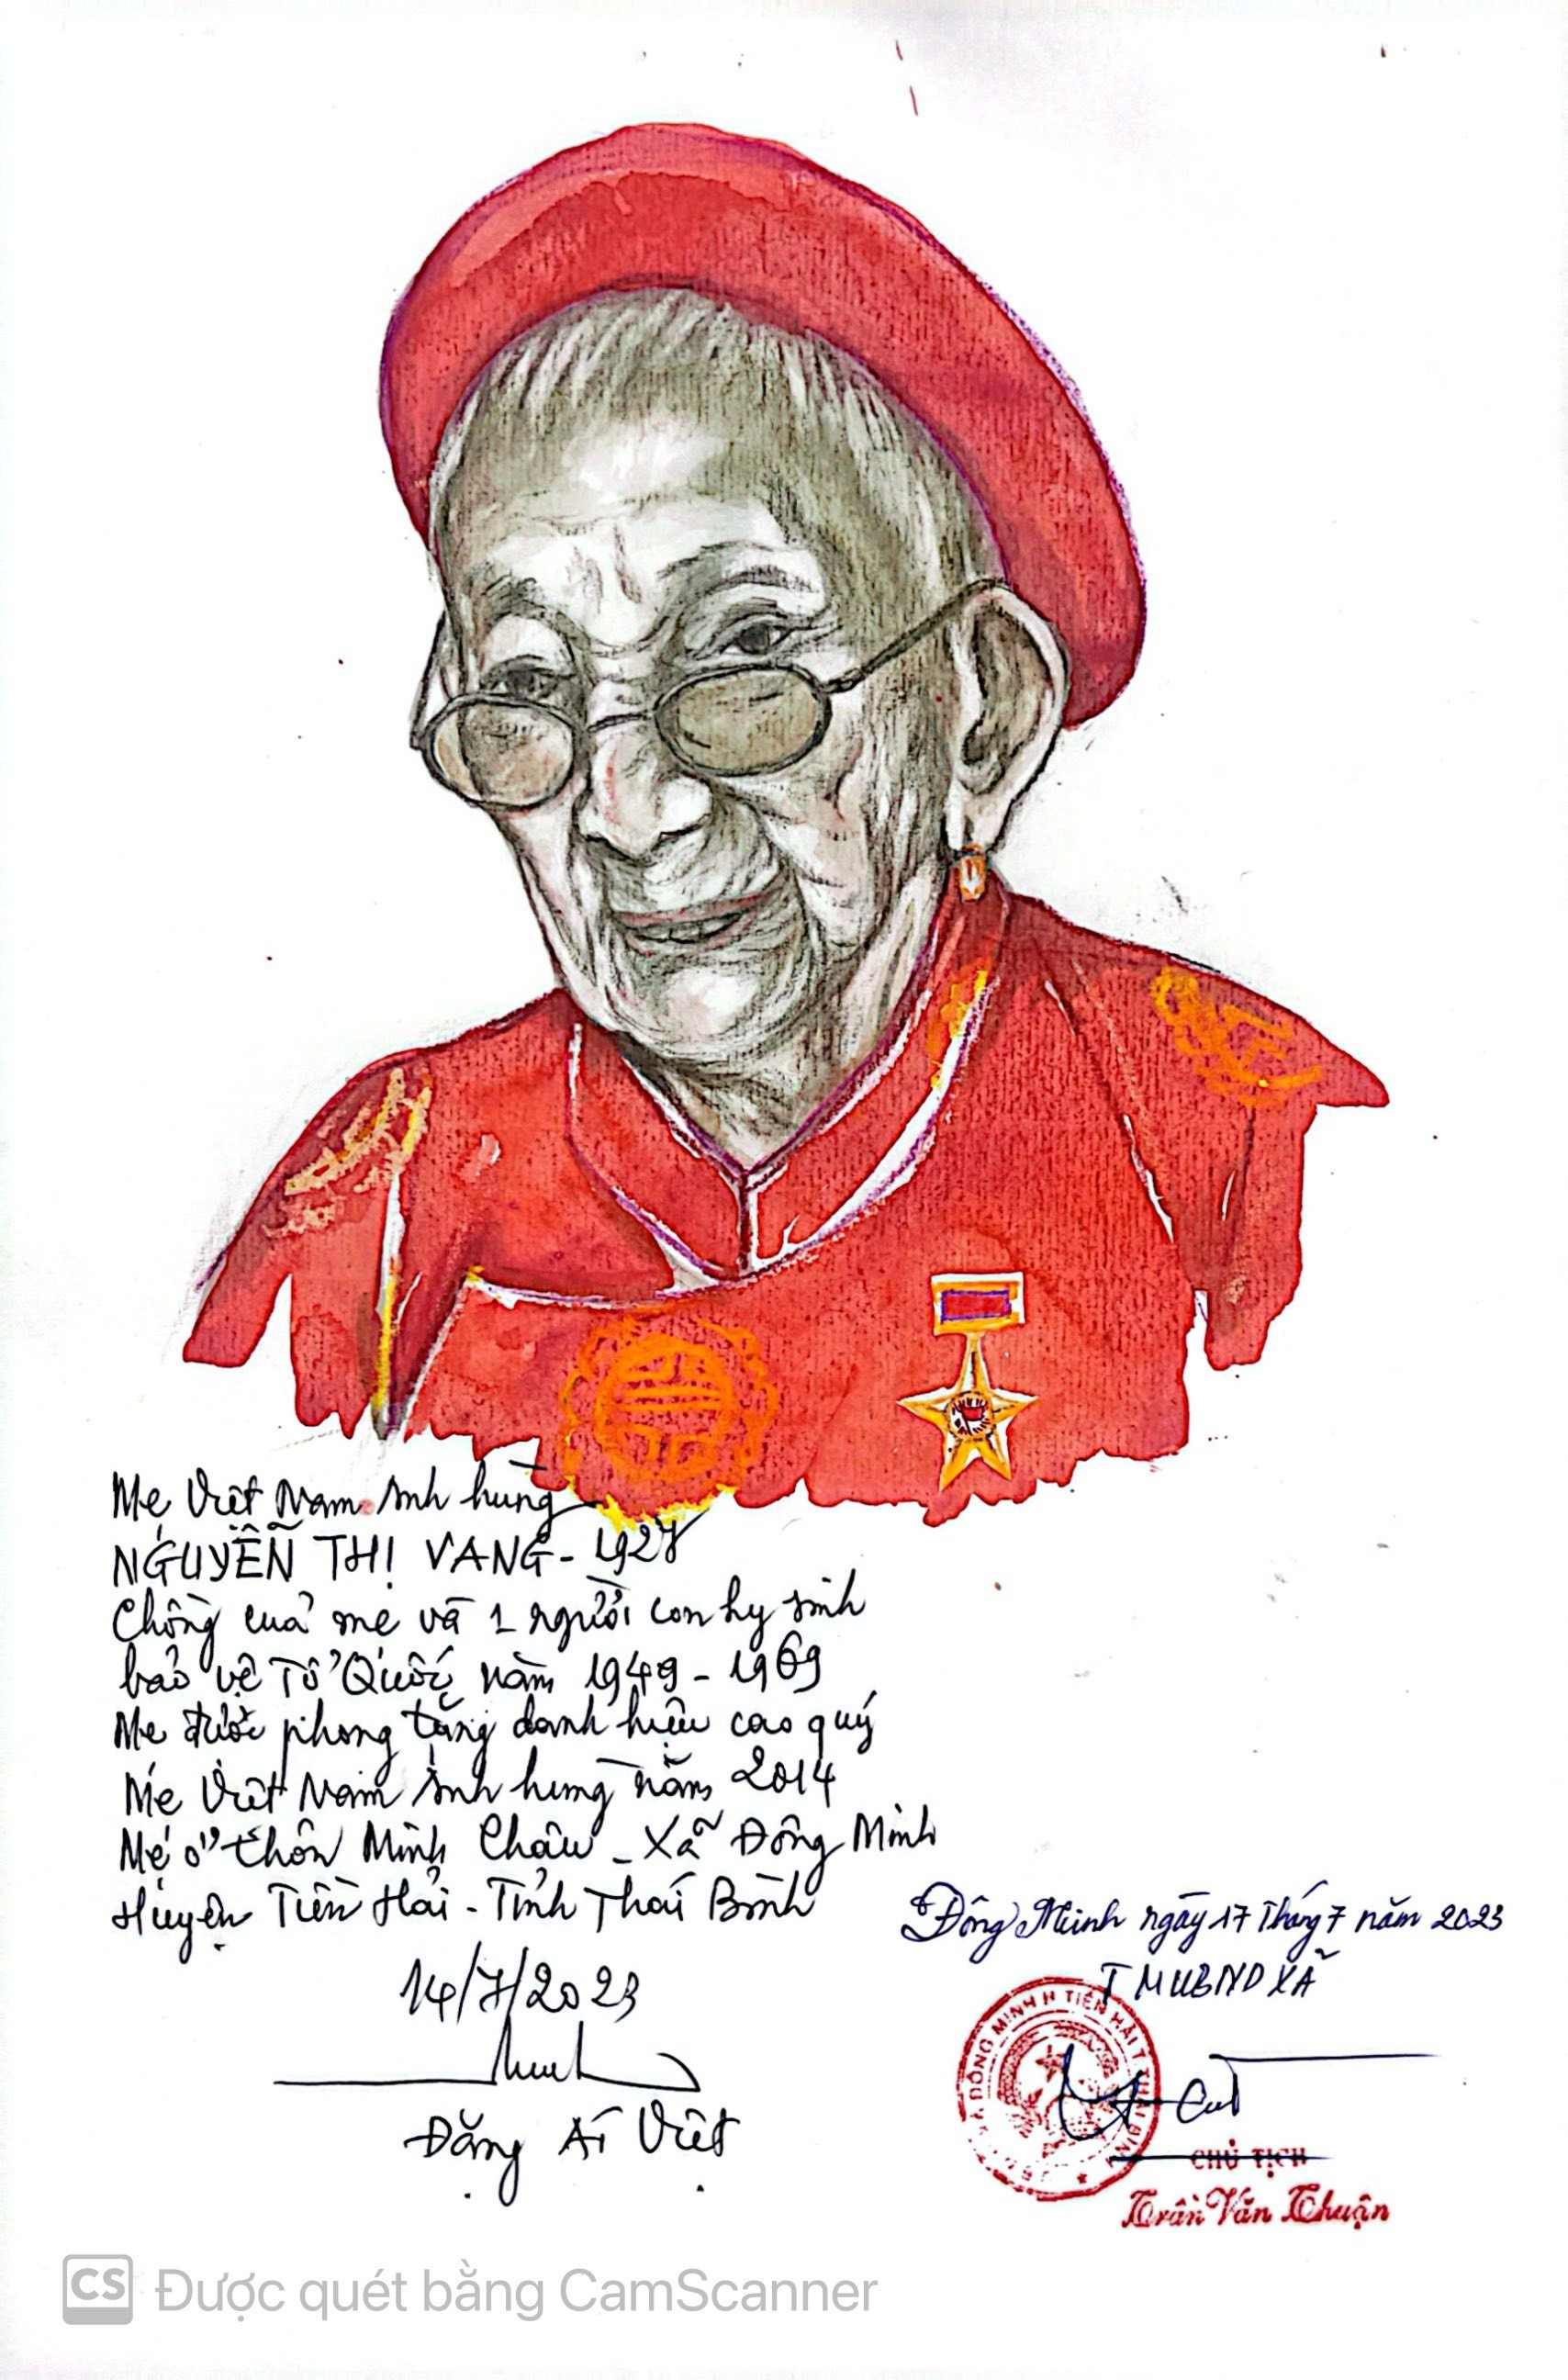 Mẹ Việt Nam Anh hùng
NGUYỄN THỊ VANG - 1927
Chồng của mẹ và 1 người con hy sinh
bảo vệ Tổ Quốc năm 1949 - 1969
Mẹ được phong tặng danh hiệu cao quý
Mẹ Việt Nam Anh hùng năm 2014
Mẹ ở thôn Minh Châu - Xã Đông Minh
Huyện Tiền Hải - Tỉnh Thái Bình
14/7/2023
Đặng Ái Việt
Đông Minh ngày 17 tháng 7 năm 2023
T M UBND XÃ
XÃ ĐÔNG MINH H TIỀN HẢI T THÁI BÌNH
CHỦ TỊCH
Trần Văn Thuận
CS Được quét bằng CamScanner